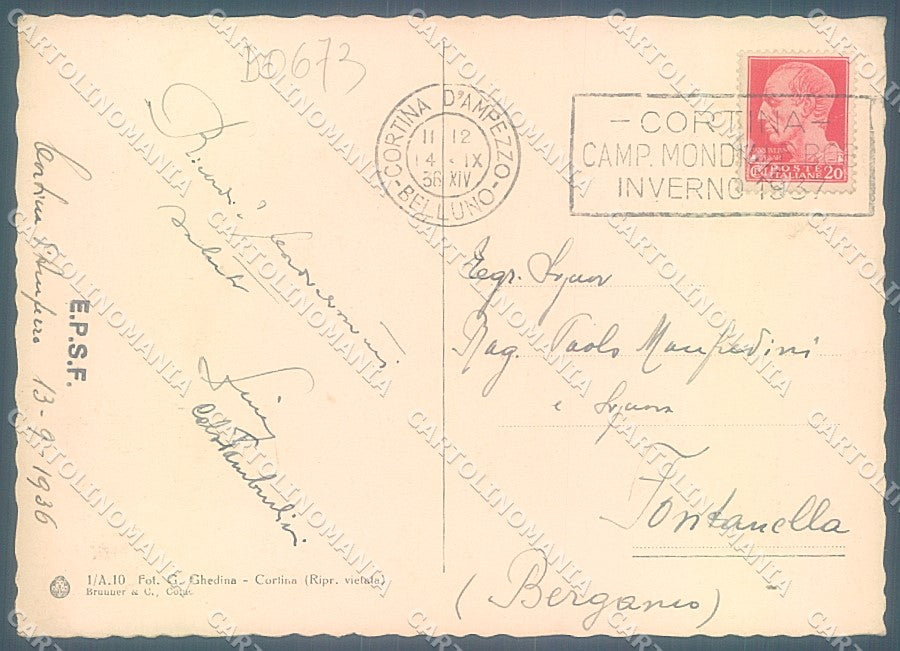 DO673
CORTINA D'AMPEZZO
11-12
14-IX
36 XIV
-BELLUNO-
- CORTINA -
CAMP. MONDIALI DEL
INVERNO 1937
POSTE
ITALIANE 20
Ricordi
saluti
Egr. Signor
Rag. Paolo Manfredini
e Signora
Fontanella
(Bergamo)
Cortina Ampezzo 13-9-1936
E.P.S.F.
1/A.10 Fot. G. Ghedina - Cortina (Ripr. vietata)
Brunner & C., Como
CARTOLINOMANIA